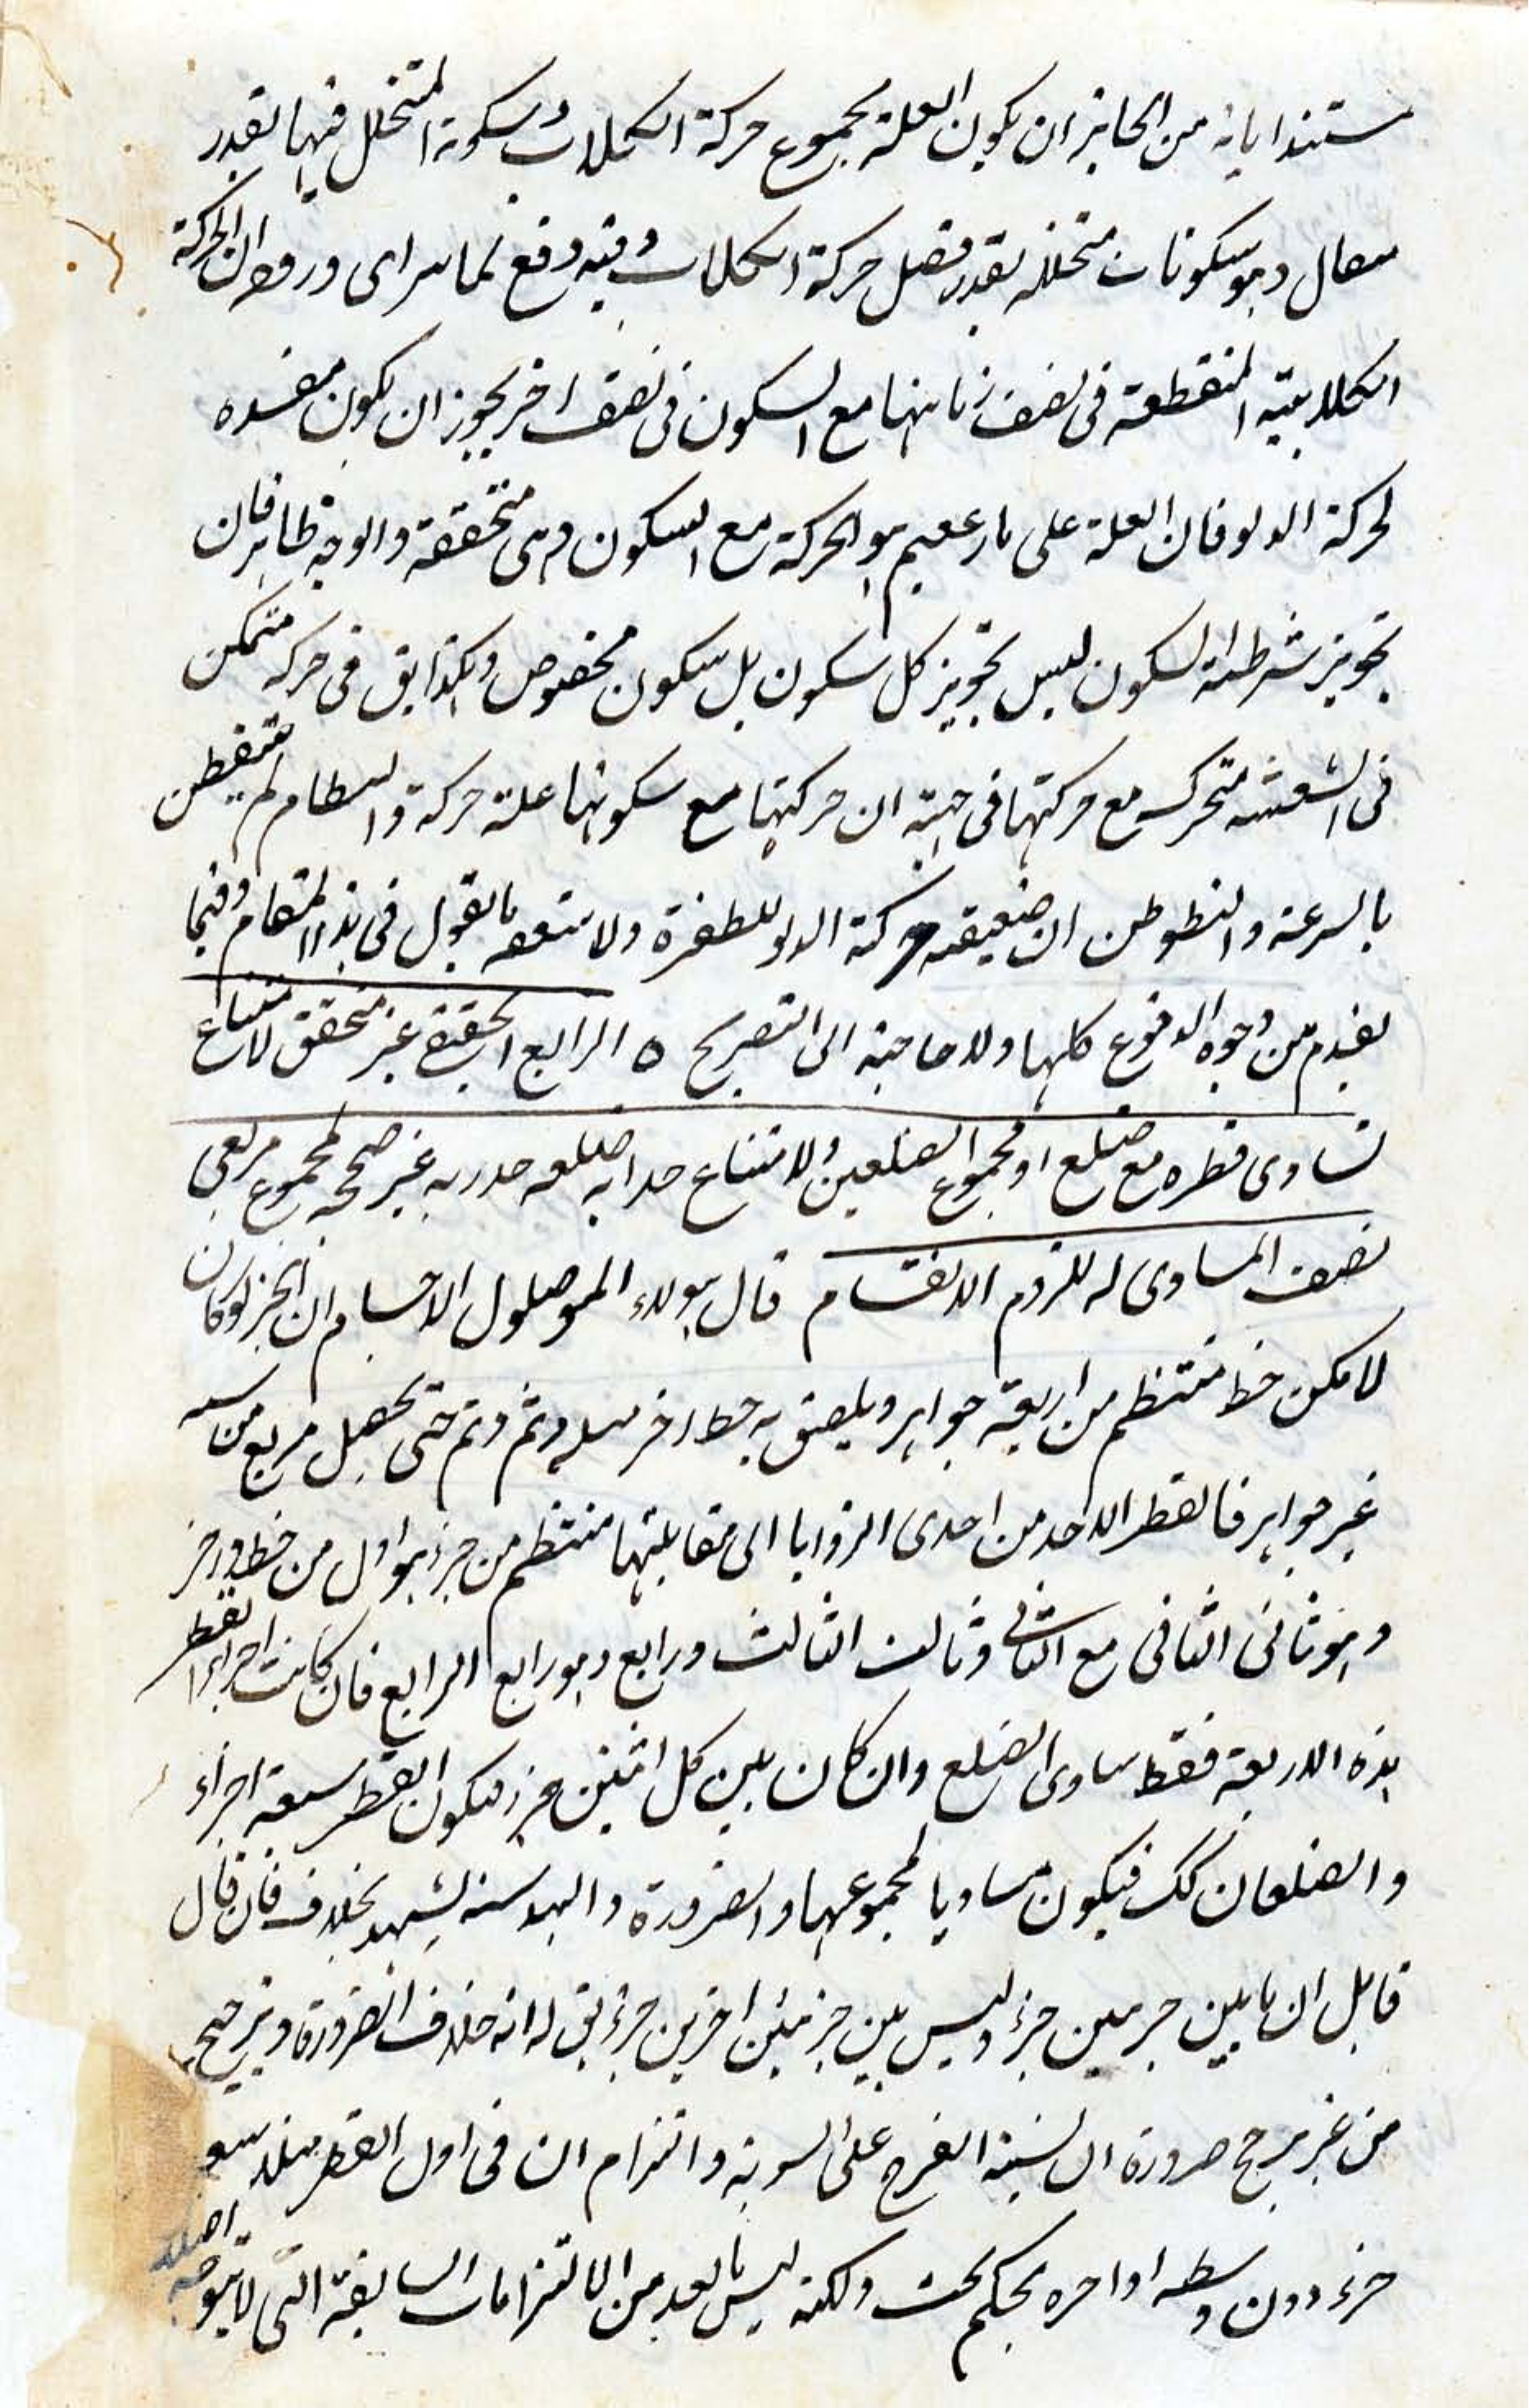 مستندا بانه من الجائز ان يكون العلة مجموع حركة الكلاب وسكونه المتخلل فيها بقدر
وهو سكونات متخلله بقدر فضل حركة الكلاب وفيه دفع لما ورود ان الحركة
الكلابيته المنقطعة فى نصف زمانها مع السكون فى نصف اخر يجوز ان يكون مفسده
لحركة الدلو فان العلة على ما زعمتم هو الحركة مع السكون وهى متحققة والوجه ظاهر فان
تجويز شرطية السكون ليس تجويز كل سكون بل سكون مخصوص وهكذا يق فى حركة متمكن
فى السفينة متحرك مع حركتها فى جهته ان حركتها مع سكونها علة حركة والنظام لم يتفطن
بالسرعة والبطو ظن ان حقيقة حركة الدلو للطفرة ولا بالقول فى هذا المقام وفيما
تقدم من وجوه الدفوع كلها ولا حاجة الى التصريح ٥ الرابع الحقيقى غير متحقق لامتناع
تساوى قطره مع ضلع او مجموع الضلعين ولامتناع غير صحيح لمجموع مربعى
نصف المساوى له للزوم الانقسام قال هولاء الموصلون الاجسام ان الجزء لو كان
لامكن خط منتظم من اربعة جواهر ويلصق به خط اخر مثله وثم وثم حتى يحصل مربع من ستة
عشر جواهر فالقطر الاخذ من احدى الزوايا الى مقابلتها منتظم من جزء هو اول من خط واخر
وهو ثانى الثانى مع الثانى وثالث الثالث ورابع وهو رابع الرابع فان كانت اجزاء القطر
هذه الاربعة فقط ساوى الضلع وان كان بين كل اثنين جزء فيكون القطر سبعة اجزاء
والضلعان كك فيكون مساويا لمجموعهما والضرورة والهندسة يشهد بخلافه فان قال
قايل ان ما بين جزئين جزء وليس بين جزئين اخرين جزء يق له انه خلاف الضرورة وترجيح
من غير مرجح ضرورة ان نسبة الفرج على السوية والتزام ان فى اول القطر مثلا يسع
جزء دون وسطه او اخره تحكم بحت ولكنه ليس بابعد من الالتزامات السابقة التى لا يتوجه
اصلا